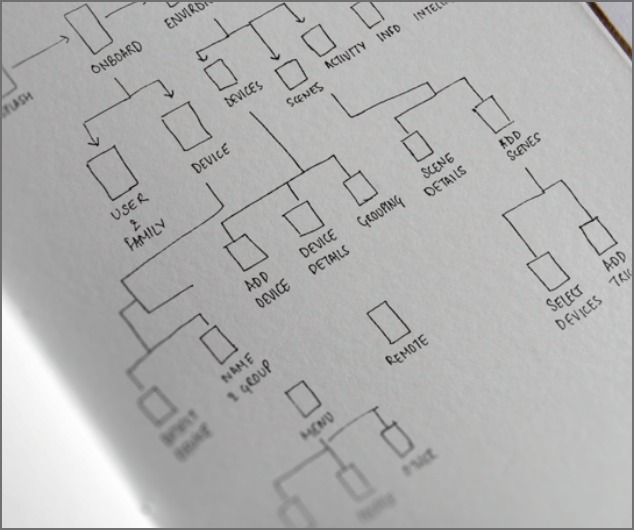 ONBOARD
DEVICES
SCENES
ACTIVITY
INFO
USER
&
FAMILY
DEVICE
SCENE
DETAILS
ADD
SCENES
ADD
DEVICE
DEVICE
DETAILS
GROUPING
SELECT
DEVICES
ADD
NAME
& GROUP
REMOTE
MENU